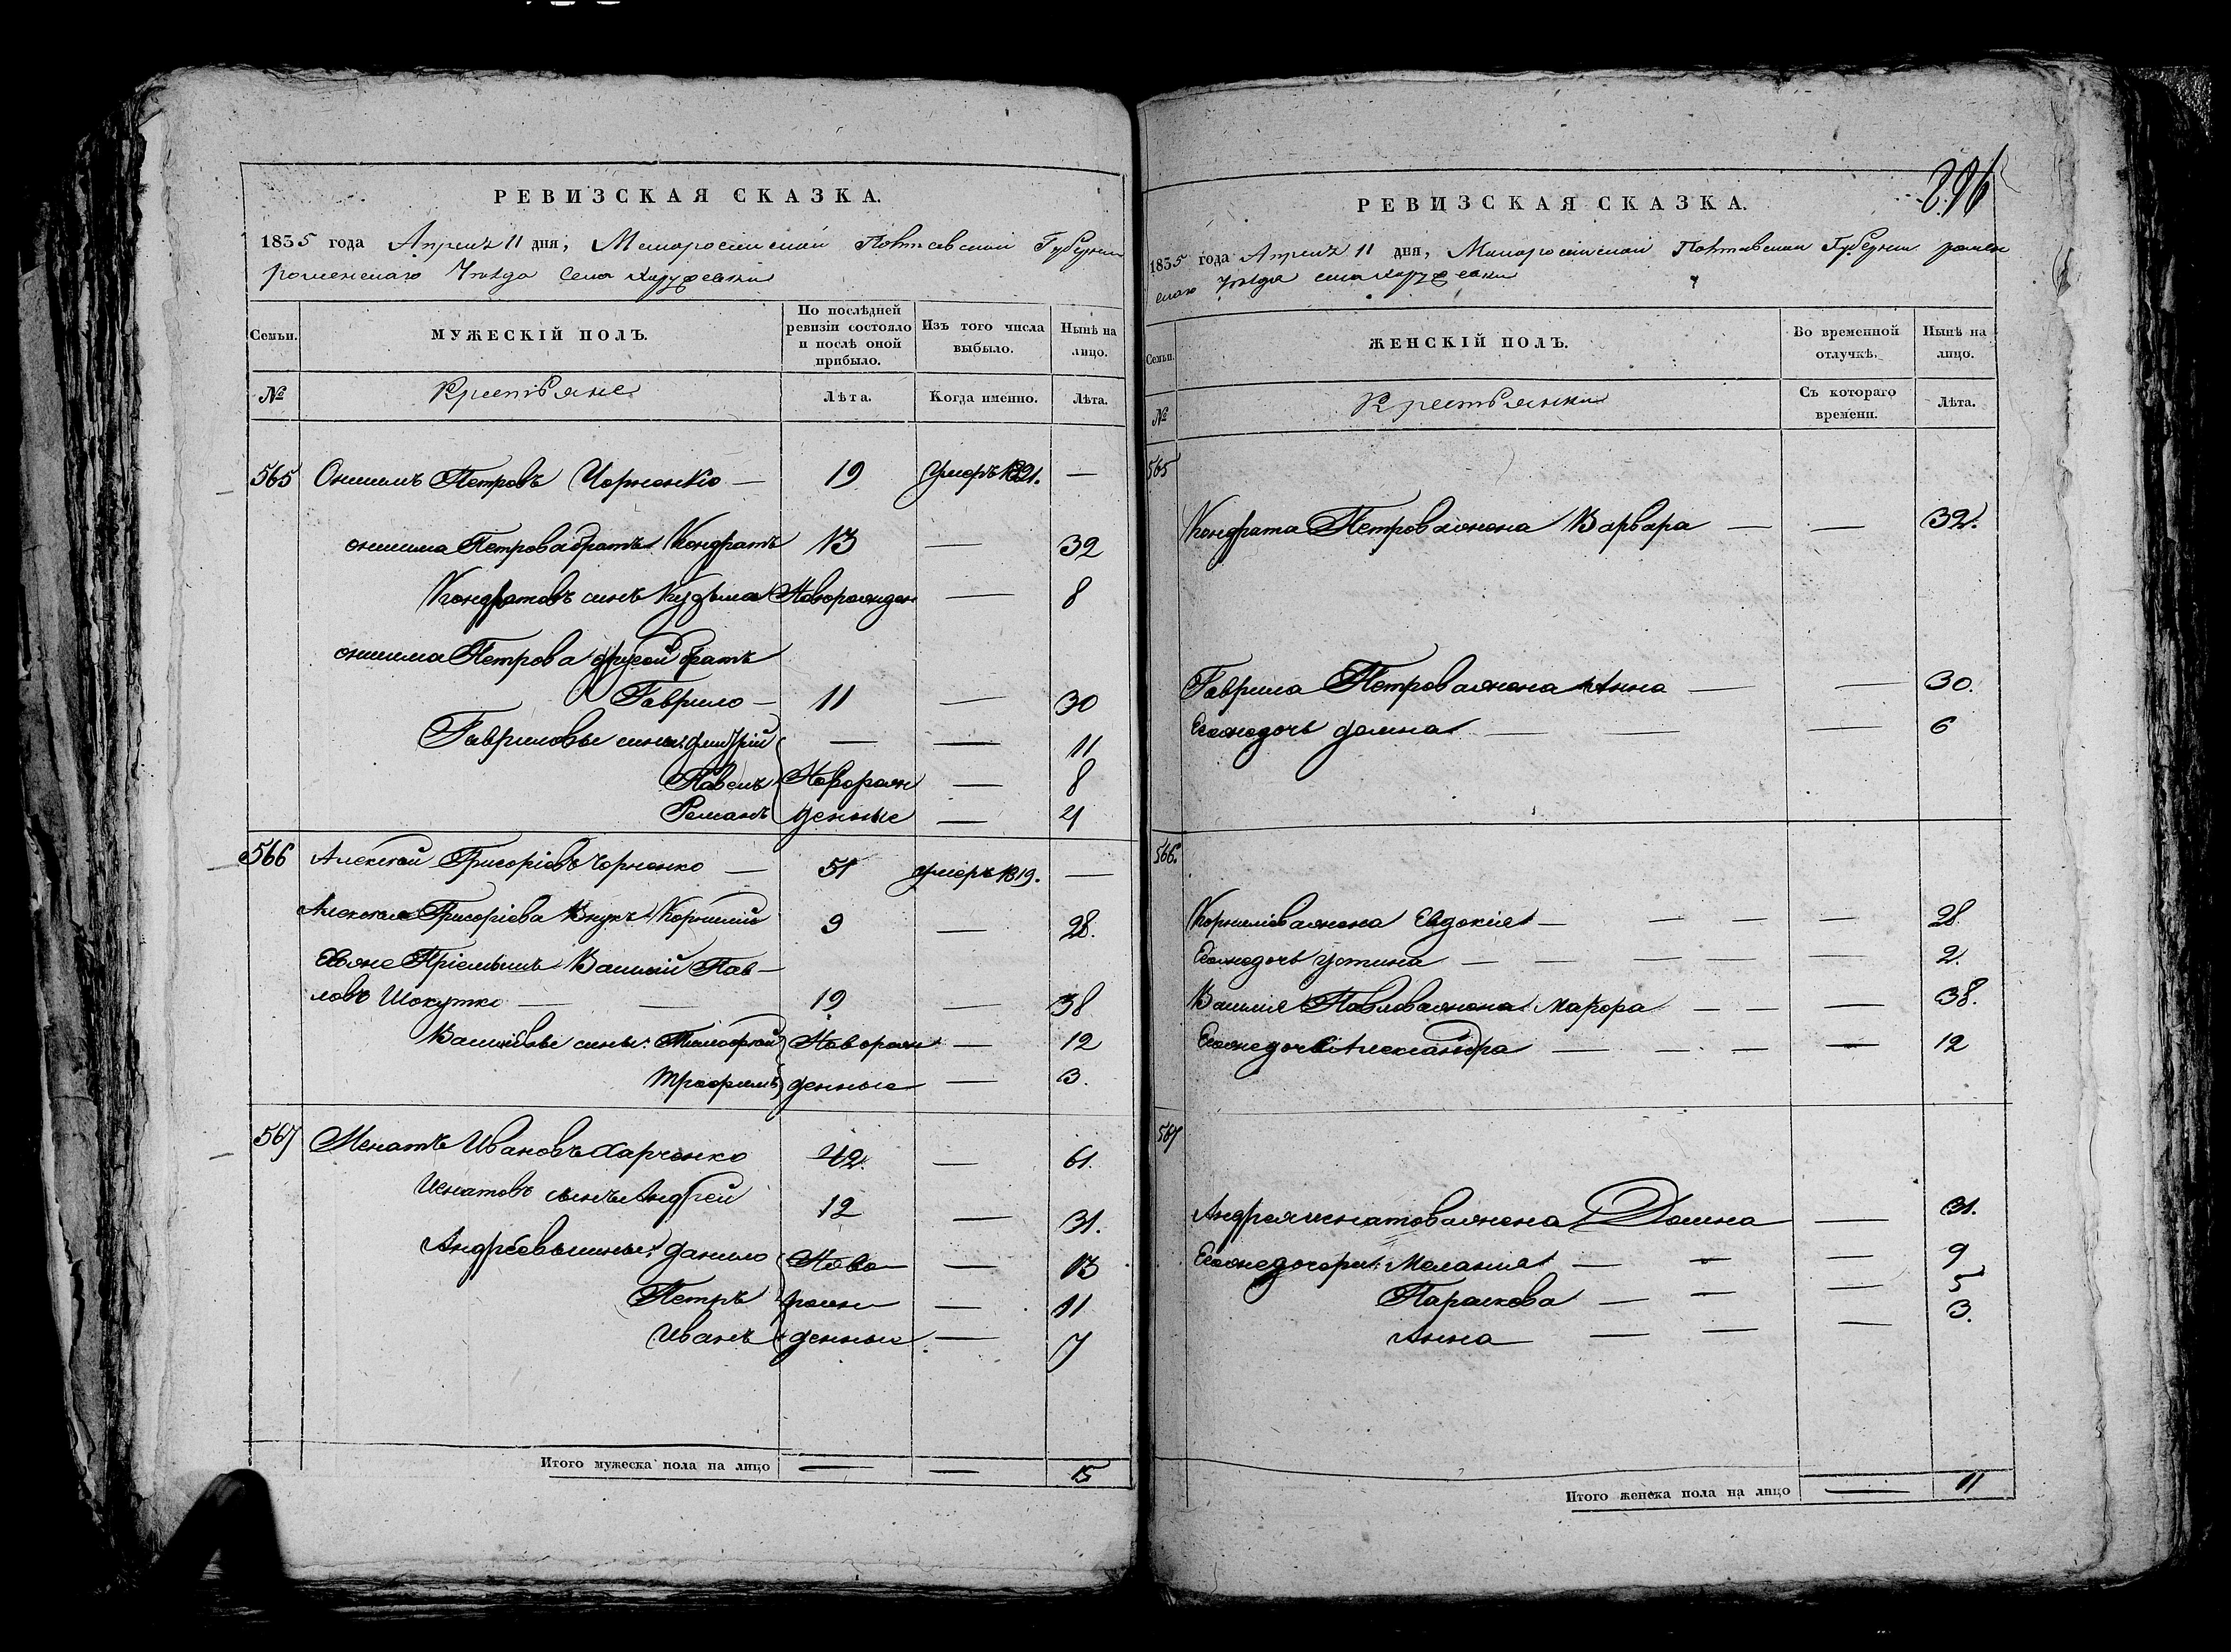 РЕВИЗСКАЯ СКАЗКА.
1835 года Апреля 11 дня, Малоросiйской Полтавской Губернии
роменскаго Уѣзда Села Харуфевки
Семьи.
МУЖЕСКІЙ ПОЛЪ.
По послѣдней ревизіи состояло и послѣ оной прибыло.
Изъ того числа выбыло.
Нынѣ на лицо.
№
Крестьяне
Лѣта.
Когда именно.
Лѣта.
565 Онисимъ Петровъ Чорненко — 19 Умеръ 1821. —
онисима Петрова братъ Кондратъ 13 — 32
Кондратовъ сынъ Кузьма Новорожден — 8
онисима Петрова другой братъ
Гаврило — 11 — 30
Гавриловы сыны: Дмитрій — — 11
Павелъ Новорож — 8
Романъ денные — 4
566 Алексѣй Григоріевъ Чорненко — 51 умеръ 1819. —
Алексѣя Григоріева Внукъ Корнилій 9 — 28.
Егоже Пріемышъ Василій Пав—
ловъ Шокутко — — 19 — 38
Василіевы сыны: Тимофѣй Новорож — 12
Трофимъ денные — 3.
567 Игнатъ Ивановъ Харченко 42. — 61.
Игнатовъ сынъ Андрей 12 — 31.
Андреевы сыны: данило Ново — 13
Петръ рож — 11
Иванъ денные — 7
Итого мужеска пола на лицо — — 15
296
РЕВИЗСКАЯ СКАЗКА.
1835 года Апреля 11 дня, Малоросiйской Полтавской Губернии ромен
скаго Уѣзда села Харуфевки
Семьи.
ЖЕНСКІЙ ПОЛЪ.
Во временной отлучкѣ.
Нынѣ на лицо.
№
Крестьянки
Съ котораго времени.
Лѣта.
565
Кондрата Петрова жена Варвара — — 32.
Гаврила Петрова жена Анна — — 30.
Егоже дочь домна — — — 6
566.
Корнилiева жена Евдокiя — — — — 28.
Егоже дочь устина — — — — — 2.
Василiя Павлова жена Мавра — — — 38.
Егоже дочь Александра — — — — 12
567
Андрея игнатова жена Домна — 31.
Егоже дочери: Меланiя — — — 9
Параскева — — — 5
Анна — — — 3.
Итого женска пола на лицо — 11